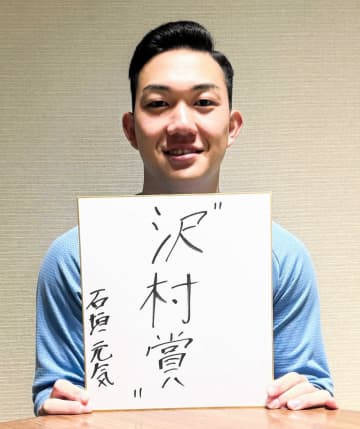 〝沢村賞〟
石垣元気